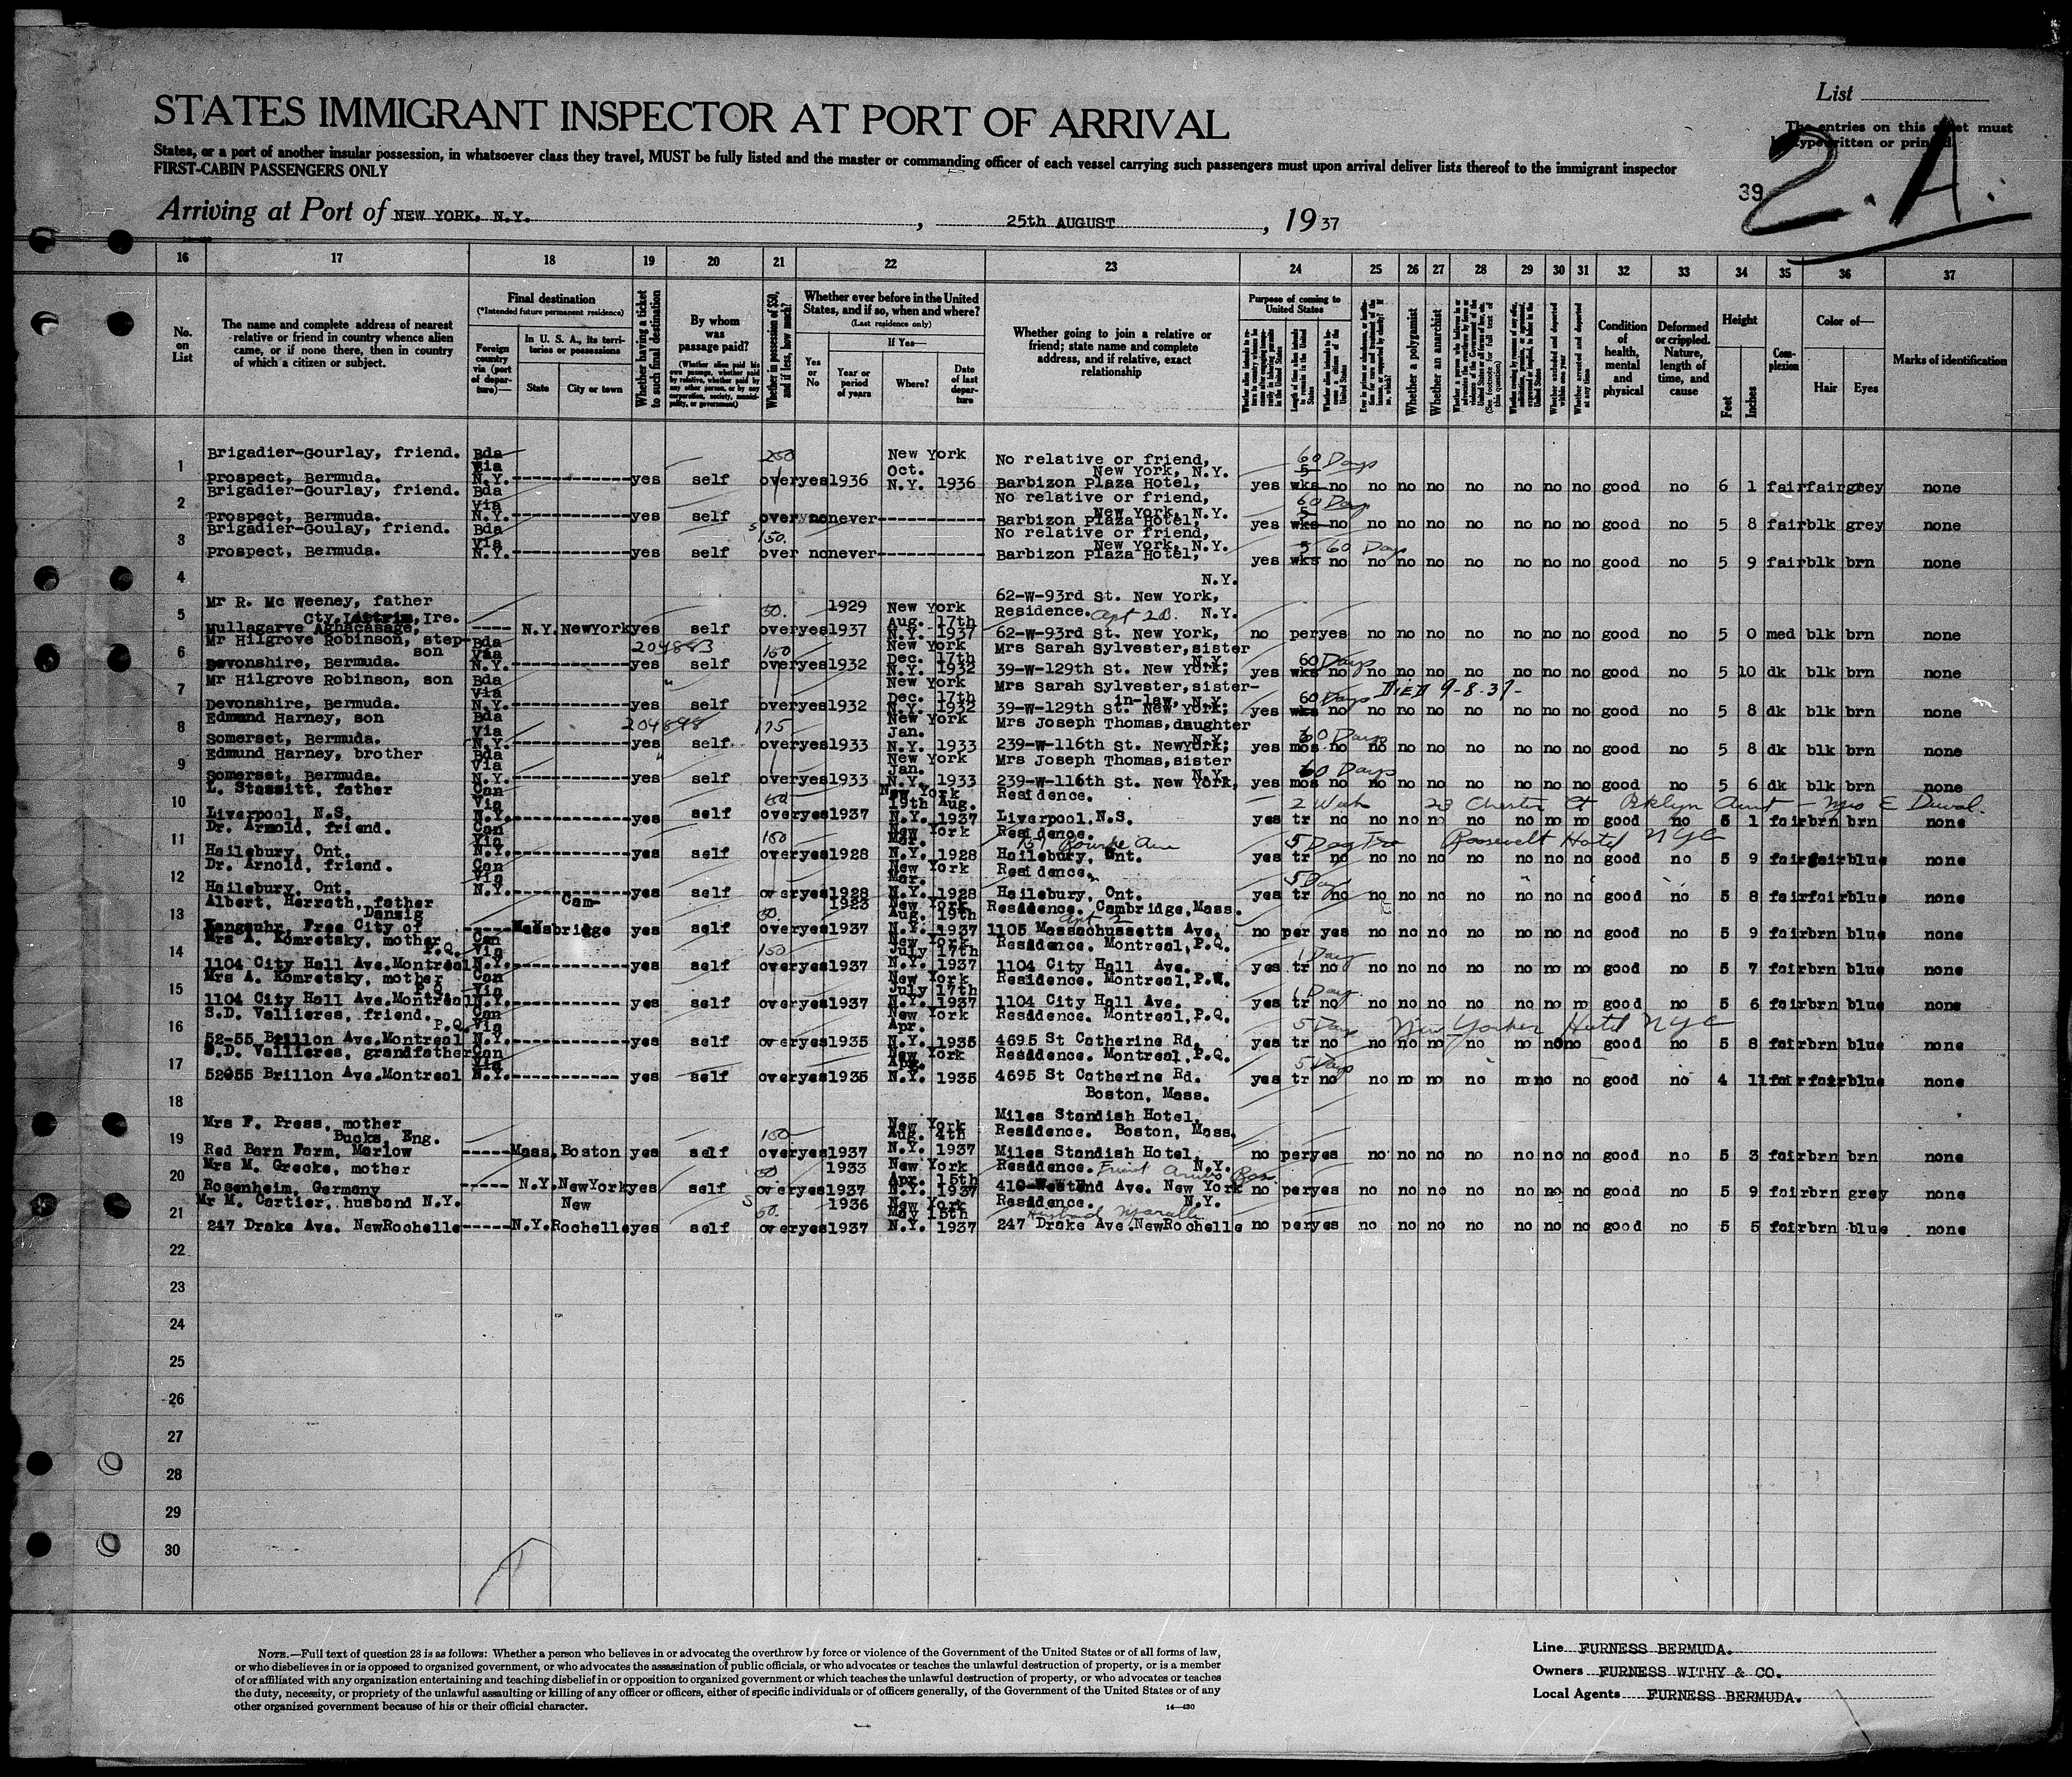 List
The entries on this sheet must
be typewritten or printed.
STATES IMMIGRANT INSPECTOR AT PORT OF ARRIVAL
States, or a port of another insular possession, in whatsoever class they travel, MUST be fully listed and the master or commanding officer of each vessel carrying such passengers must upon arrival deliver lists thereof to the immigrant inspector
FIRST-CABIN PASSENGERS ONLY
39
2.A.
Arriving at Port of NEW YORK, N.Y. , 25th AUGUST , 1937
16 17 18 19 20 21 22 23 24 25 26 27 28 29 30 31 32 33 34 35 36 37
No. on List
The name and complete address of nearest relative or friend in country whence alien came, or if none there, then in country of which a citizen or subject.
Final destination
(*Intended future permanent residence)
Foreign country via (port of departure)—
In U. S. A., its territories or possessions
State
City or town
Whether having a ticket to such final destination
By whom was passage paid?
(Whether alien paid his own passage, whether paid by relative, whether paid by any other person, or by any corporation, society, municipality, or government)
Whether in possession of $50, and if less, how much?
Whether ever before in the United States, and if so, when and where?
(Last residence only)
Yes or No
If Yes—
Year or period of years
Where?
Date of last departure
Whether going to join a relative or friend; state name and complete address, and if relative, exact relationship
Purpose of coming to United States
Length of time alien intends to remain in the United States
Whether a polygamist
Whether an anarchist
(See footnote for full text of this question)
Whether arrested and deported at any time
Condition of health, mental and physical
Deformed or crippled. Nature, length of time, and cause
Height
Feet
Inches
Complexion
Color of—
Hair
Eyes
Marks of identification
1 Brigadier-Gourlay, friend. Prospect, Bermuda. Bda Via N.Y. yes self 250 over yes 1936 New York Oct. N.Y. 1936 No relative or friend, New York, N.Y. Barbizon Plaza Hotel, 60 Days yes 5 wks no no no no no no no no good no 6 1 fair fair grey none
2 Brigadier-Gourlay, friend. Prospect, Bermuda. Bda Via N.Y. yes self over no never No relative or friend, New York, N.Y. Barbizon Plaza Hotel, 60 Days yes 5 wks no no no no no no no no good no 5 8 fair blk grey none
3 Brigadier-Goulay, friend. Prospect, Bermuda. Bda Via N.Y. yes self 150. over no never No relative or friend, New York, N.Y. Barbizon Plaza Hotel, 60 Days yes 5 wks no no no no no no no no good no 5 9 fair blk brn none
4 N.Y. 62-W-93rd St. New York,
5 Mr R. Mc Weeney, father Cty. Leitrim, Ire. Mullagarve Aghacasage, N.Y. New York yes self 50. over yes 1929 1937 New York Aug. 17th N.Y. 1937 Residence. Apt 2B. N.Y. 62-W-93rd St. New York, no per yes no no no no no no no good no 5 0 med blk brn none
6 Mr Hilgrove Robinson, step-son Devonshire, Bermuda. Bda Via N.Y. 204883 yes self 150 over yes 1932 New York Dec. 17th N.Y. 1932 Mrs Sarah Sylvester, sister N.Y. 39-W-129th St. New York, 60 Days yes wks no no no no no no no no good no 5 10 dk blk brn none
7 Mr Hilgrove Robinson, son Devonshire, Bermuda. Bda Via N.Y. " yes self over yes 1932 New York Dec. 17th N.Y. 1932 Mrs Sarah Sylvester, sister-in-law, N.Y. 39-W-129th St. New York, 60 Days DIED 9-8-37- yes wks no no no no no no no no good no 5 8 dk blk brn none
8 Edmund Harney, son Somerset, Bermuda. Bda Via N.Y. 204898 yes self 175 over yes 1933 New York Jan. N.Y. 1933 Mrs Joseph Thomas, daughter N.Y. 239-W-116th St. New York, 60 Days yes mos no no no no no no no no good no 5 8 dk blk brn none
9 Edmund Harney, brother Somerset, Bermuda. Bda Via N.Y. " yes self over yes 1933 New York Jan. N.Y. 1933 Mrs Joseph Thomas, sister N.Y. 239-W-116th St. New York, 60 Days yes mos no no no no no no no no good no 5 6 dk blk brn none
10 L. Stassitt, father Liverpool, N.S. Can Via N.Y. yes self over yes 1937 New York 19th Aug. N.Y. 1937 Residence. Liverpool, N.S. 23 Chester Ct Bklyn Aunt - Mrs E Duval yes tr no no no no no no no no good no 5 1 fair brn brn none
11 Dr. Arnold, friend. Hailebury, Ont. Can Via N.Y. yes self 150 over yes 1928 New York Mar. N.Y. 1928 Residence. Hailebury, Ont. 5 Days Roosevelt Hotel NYC yes tr no no no no no no no no good no 5 9 fair fair blue none
12 Dr. Arnold, friend. Hailebury, Ont. Can Via N.Y. yes self over yes 1928 New York Mar. N.Y. 1928 Residence. Hailebury, Ont. 5 Days yes tr no no no no no no no no good no 5 8 fair fair blue none
13 Albert, Herrath, father Danzig Langsuhr, Free City of Mass Cambridge yes self 50. over yes 1923 1937 New York Aug. 19th N.Y. 1937 Residence. Cambridge, Mass. Apt 2 1105 Massachussetts Ave. no per yes no no no no no no no good no 5 9 fair brn blue none
14 Mrs A. Komretsky, mother P.Q. 1104 City Hall Ave. Montreal Can Via N.Y. yes self 150 over yes 1937 New York July 17th N.Y. 1937 Residence. Montreal, P.Q. 1104 City Hall Ave. 1 Day yes tr no no no no no no no no good no 5 7 fair brn blue none
15 Mrs A. Komretsky, mother P.Q. 1104 City Hall Ave. Montreal Can Via N.Y. yes self over yes 1937 New York July 17th N.Y. 1937 Residence. Montreal, P.W. 1104 City Hall Ave. 1 Day yes tr no no no no no no no no good no 5 6 fair brn blue none
16 S.D. Vallieres, friend. P.Q. 52-55 Brillon Ave. Montreal Can Via N.Y. yes self over yes 1935 New York Apr. N.Y. 1935 Residence. Montreal, P.Q. 4695 St Catherine Rd. 5 Days New Yorker Hotel NYC yes tr no no no no no no no no good no 5 8 fair brn blue none
17 S.D. Vallieres, grandfather 52-55 Brillon Ave. Montreal Can Via N.Y. yes self over yes 1935 New York Apr. N.Y. 1935 Residence. Montreal, P.Q. 4695 St Catherine Rd. 5 Days yes tr no no no no no no no no good no 4 11 fair fair blue none
18 Boston, Mass. Miles Standish Hotel,
19 Mrs F. Press, mother Bucks, Eng. Red Barn Farm, Marlow Mass. Boston yes self 150 over yes 1937 New York Aug. 4th N.Y. 1937 Residence. Boston, Mass. Miles Standish Hotel. no per yes no no no no no no no good no 5 3 fair brn brn none
20 Mrs M. Grecke, mother Rosenheim, Germany N.Y. New York yes self 50 over yes 1933 1937 New York Apr. 15th N.Y. 1937 Residence. N.Y. 410-West End Ave. New York no per yes no no no no no no no good no 5 9 fair brn grey none
21 Mr M. Cartier, husband N.Y. 247 Drake Ave. New Rochelle N.Y. New Rochelle yes self 50. over yes 1936 1937 New York May 15th N.Y. 1937 Residence. N.Y. Husband 247 Drake Ave. New Rochelle no per yes no no no no no no no good no 5 5 fair brn blue none
22
23
24
25
26
27
28
29
30
NOTE.—Full text of question 28 is as follows: Whether a person who believes in or advocates the overthrow by force or violence of the Government of the United States or of all forms of law,
or who disbelieves in or is opposed to organized government, or who advocates the assassination of public officials, or who advocates or teaches the unlawful destruction of property, or is a member
of or affiliated with any organization entertaining and teaching disbelief in or opposition to organized government or which teaches the unlawful destruction of property, or who advocates or teaches
the duty, necessity, or propriety of the unlawful assaulting or killing of any officer or officers, either of specific individuals or of officers generally, of the Government of the United States or of any
other organized government because of his or their official character.
14—430
Line FURNESS BERMUDA.
Owners FURNESS WITHY & CO.
Local Agents FURNESS BERMUDA.